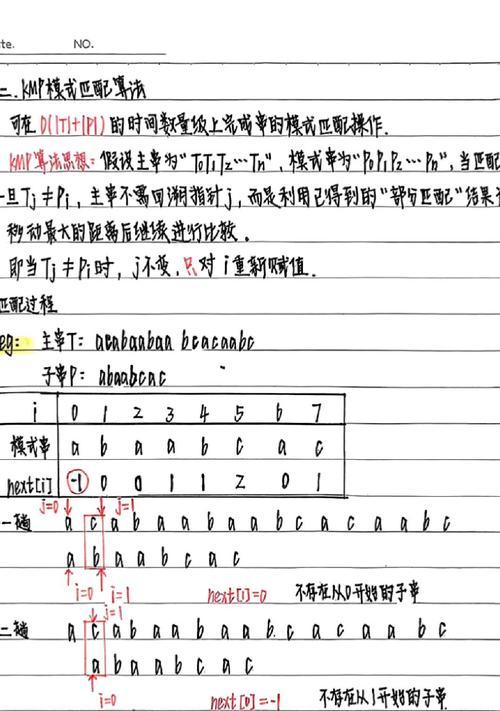 te. NO.
二. KMP模式匹配算法
可在O(|T|+|P|)的时间数量级上完成串的模式匹配操作.
KMP算法思想: 假设主串为"T0T1T2…Tn", 模式串为"P0P1P2…Pn", 当匹配
一旦Tj≠Pi, 主串不需回溯指针j, 而是利用已得到的"部分匹配"结果
移动最大的距离后继续进行比较.
即当Tj≠Pi时, j不变, 只对i重新赋值.
匹配过程
eg: 主串T: acabaabaa bcacaabc
子串P: abaabcac
i 0 1 2 3 4 5 6 7
模式串 a b a a b c a c
next[i] -1 0 0 1 1 2 0 1
j=0 j=1
一趟 a c a b a a b a a b c a c a a b c
a b a a b c a c
i=0 i=1 next[1]=0 不存在从0开始的子串
j=1
二趟 a c a b a a b a a b. c a c a a b c
a b a a b c a c
i=0 next[0]=-1 不存在从1开始的子串